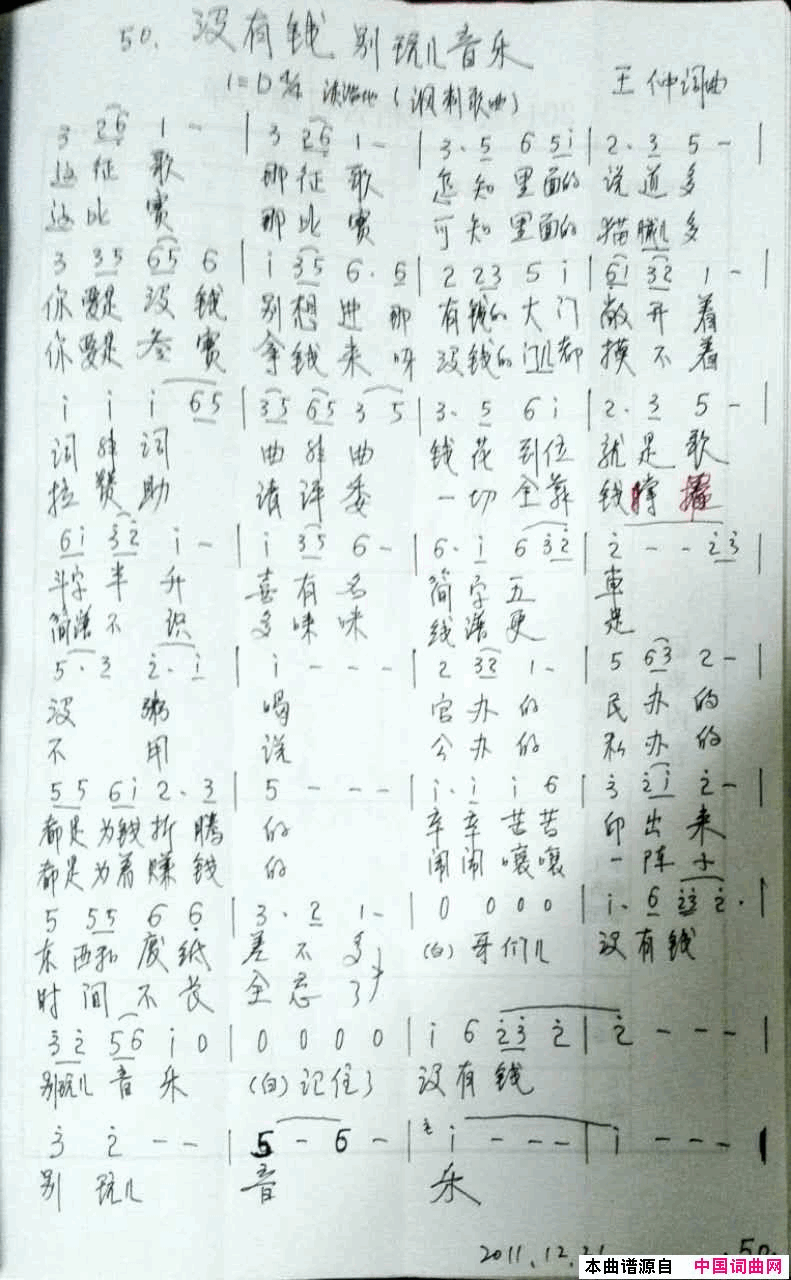 50. 没有钱 别玩儿音乐
1=D 4/4 诙谐地（讽刺歌曲） 王仲词曲
3 26 1 - | 3 26 1 - | 3. 5 6 5i | 2. 3 5 - |
这征歌 那征歌 怎知里面的 说道多
这比赛 那比赛 可知里面的 猫腻儿多
3 35 65 6 | i 35 6. 6 | 2 23 5 i | 6i 32 1 - |
你要是没钱 别想进那 有钱的大门 敞开着
你要是参赛 拿钱来呀 没钱的门儿都 摸不着
i i i 65 | 35 65 3 5 | 3. 5 6 i | 2. 3 5 - |
词 词 曲 曲 钱花到位 就是歌
拉赞助 请评委 一切全靠 钱撑
6i 32 i - | i 35 6 - | 6. i 6 32 | 2 - - 23 |
斗字半升 喜有名 简字五 車
简谱不识 多咪咪 线谱更 是
5. 3 2. i | i - - - | 2 32 1 - | 5 63 2 - |
没粥 喝 官办的 民办的
不用 说 公办的 私办的
55 6i 2. 3 | 5 - - - | i. i i 6 | 3 2i 2 - |
都是为钱折腾 的 辛辛苦苦 印出来
都是为着赚钱 的 闹闹嚷嚷 一阵子
5 55 6 6 | 3. 2 1 - | 0 0 0 0 | i. 6 23 2. |
东西和废纸 差不多 （白）哥们儿 没有钱
时间不长 全忘了
32 56 i 0 | 0 0 0 0 | i 6 23 2 | 2 - - - |
别玩儿音乐 （白）记住了 没有钱
3 2 - - | 5 - 6 - | 2 i - - - | i - - - |
别玩儿 音 乐
2011.12.21 .50.
本曲谱源自 中国词曲网